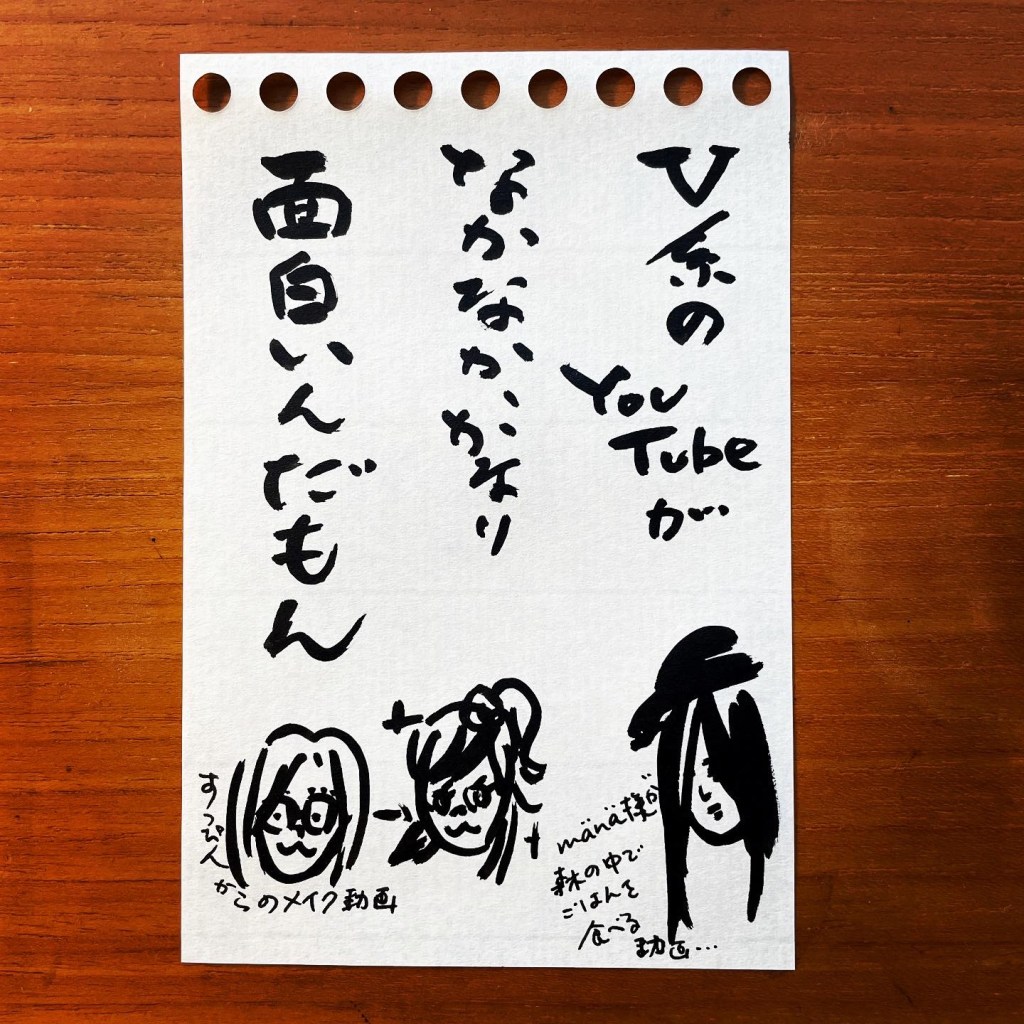 V系の
YouTubeが
なかなか、かなり
面白いんだもん
mänä様が
森の中で
ごはんを
食べる
動画…
すっぴん
からのメイク動画